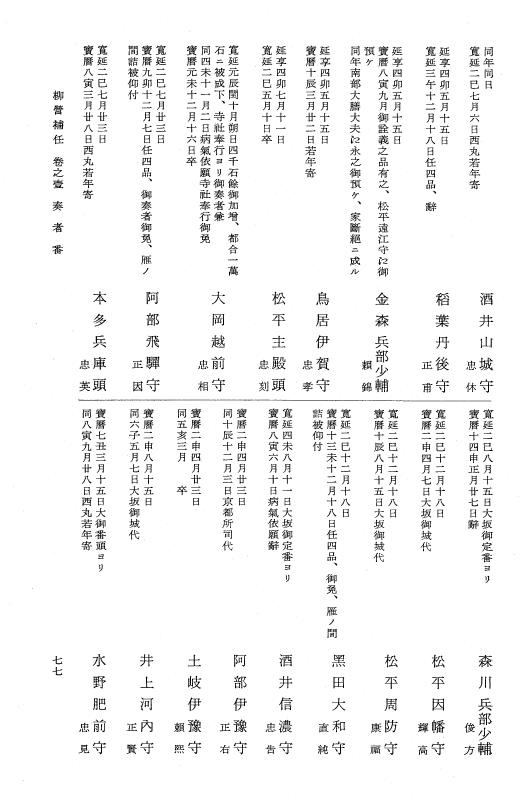 同年同日
寛延二巳七月六日西丸若年寄
酒井山城守
忠休
延享四卯五月十五日
寛延三午十二月十八日任四品、辭
稻葉丹後守
正甫
延享四卯五月十五日
寶暦八寅九月御詮義之品有之、松平遠江守に御
預ケ
同年南部大膳大夫に永之御預ケ、家斷絕ニ成ル
金森兵部少輔
賴錦
延享四卯五月十五日
寶暦十辰三月廿二日若年寄
鳥居伊賀守
忠孝
延享四卯七月十一日
寛延二巳五月十日卒
松平主殿頭
忠刻
寛延元辰閏十月朔日四千石餘御加增、都合一萬
石ニ被成下、寺社奉行ヨリ御奏者兼
同四未十一月二日病氣依願寺社奉行御免
寶暦元未十二月十六日卒
大岡越前守
忠相
寛延二巳七月廿三日
寶暦九卯十二月七日任四品、御奏者御免、雁ノ
間詰被仰付
阿部飛驒守
正因
寛延二巳七月廿三日
寶暦八寅三月廿八日西丸若年寄
本多兵庫頭
忠英
寛延二巳八月十五日大坂御定番ヨリ
寶暦十四申正月廿七日辭
森川兵部少輔
俊方
寛延二巳十二月十八日
寶暦二申四月七日大坂御城代
松平因幡守
輝高
寛延二巳十二月十八日
寶暦十辰八月十五日大坂御城代
松平周防守
康福
寛延二巳十二月十八日
寶暦十三未十二月十八日任四品、御免、雁ノ間
詰被仰付
黑田大和守
直純
寛延四未八月十一日大坂御定番ヨリ
寶暦八寅六月十日病氣依願辭
酒井信濃守
忠告
寶暦二申四月廿三日
同十辰十二月三日京都所司代
阿部伊豫守
正右
寶暦二申四月廿三日
同五亥三月 卒
土岐伊豫守
賴熙
寶暦二申八月十五日
同六子五月七日大坂御城代
井上河內守
正賢
寶暦七丑三月十五日大御番頭ヨリ
同八寅九月廿八日西丸若年寄
水野肥前守
忠見
柳營補任 卷之壹 奏者番
七七